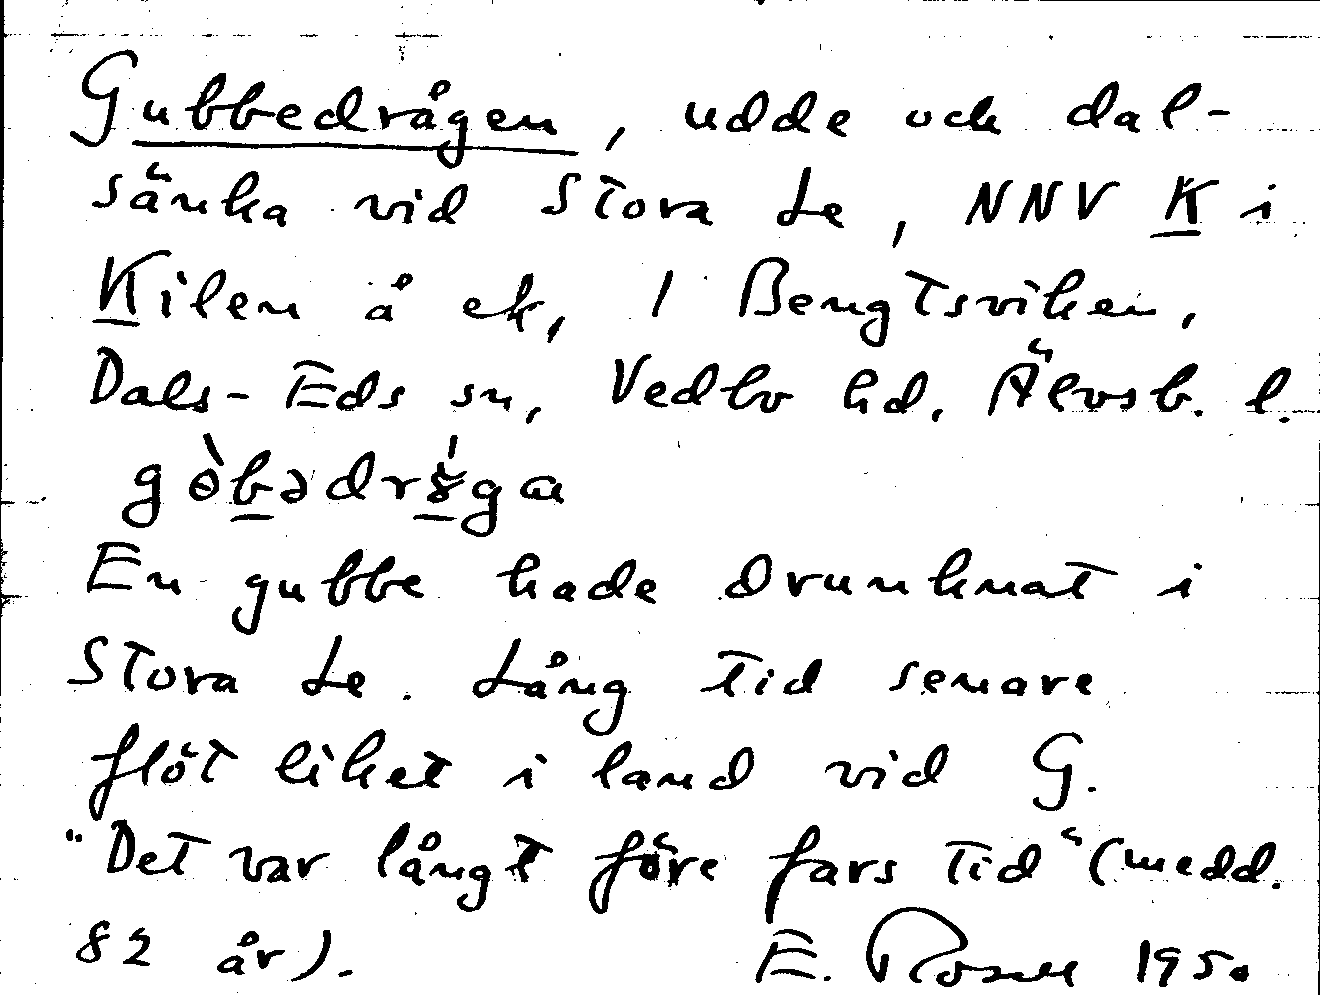 Gubbedrågen, udde och dal-
sänka vid Stora Le, NNV K i
Kilen å ek, 1 Bengtsviken,
Dals-Eds sn, Vedbo hd. Älvsb. l.
En gubbe hade drunknat i
Stora Le. Lång tid senare
flöt liket i land vid G.
"Det var långt före fars tid" (medd.
82 år). E. Rosell 1950